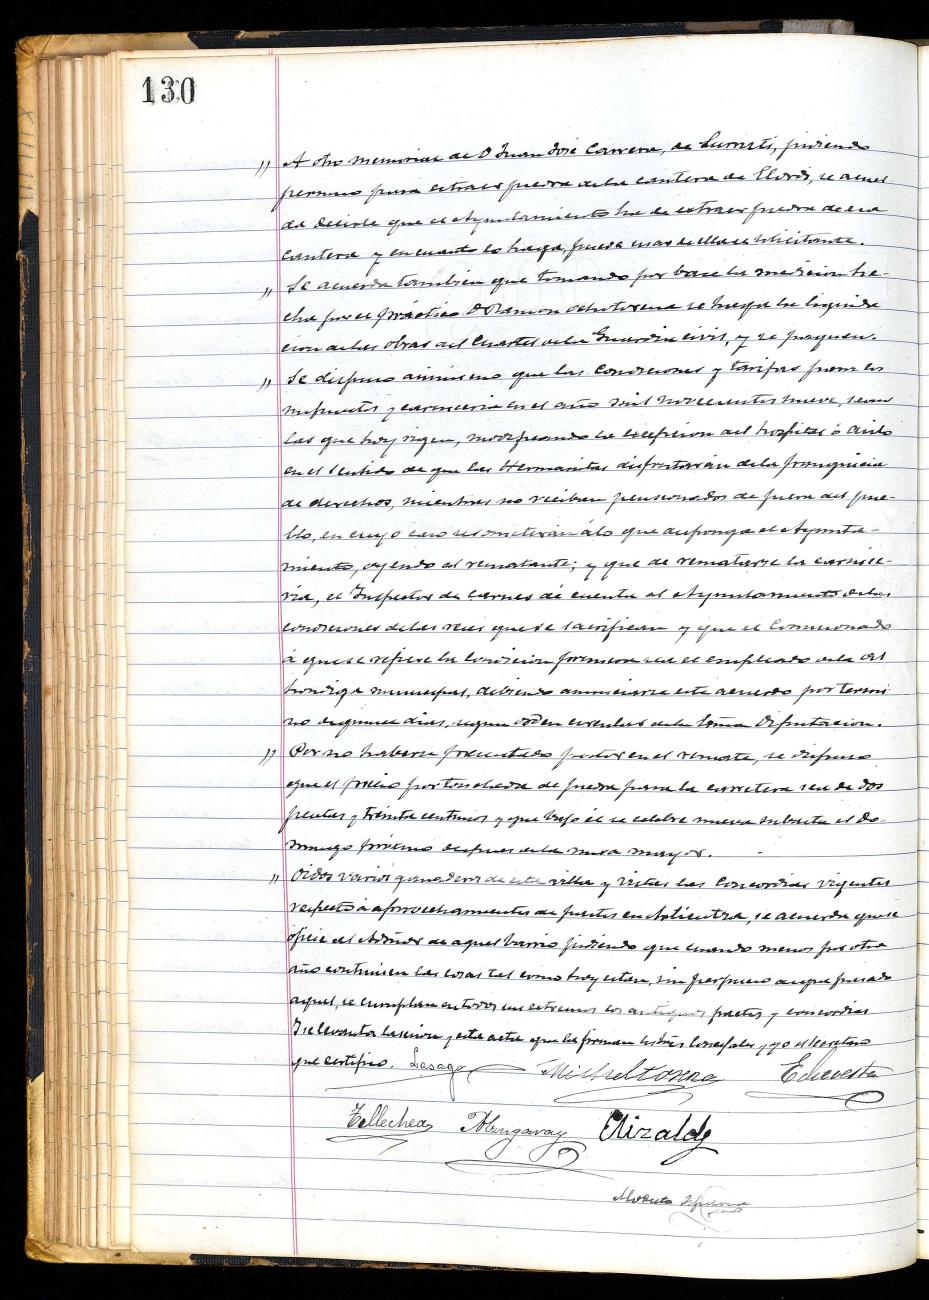 130
" A otro memorial de D Juan José Carrera, de Lurristi, pidiendo
permiso para extraer piedra de la cantera de Elordi, se acuer
da decirle que el Ayuntamiento ha de extraer piedra de esa
cantera y en cuanto lo haga, puede usar de ella el solicitante.
" Se acuerda tambien que tomando por base la medicion he-
cha por el práctico D Ramon se haga la liquida
cion de las obras del Cuartel de la Guardia civil, y se paguen.
" Se dispuso asimismo que las Condiciones y tarifas para los
impuestos y carniceria en el año mil novecientos nueve, sean
las que hoy rigen, modificando la excepcion del hospital ó Asilo
en el sentido de que las Hermanitas disfrutarán de la franquicia
de derechos, mientras no reciban pensionados de fuera del pue-
blo, en cuyo caso se someterán á lo que disponga el Ayunta-
miento, oyendo al rematante; y que de rematarse la carnice-
ria, el Inspector de carnes dé cuenta al Ayuntamiento de las
condiciones de las reses que se sacrifican y que el Comisionado
á que se refiere la condicion primera sea el empleado de la Al
hondiga municipal, debiendo anunciarse este acuerdo por termi
no de quince dias, segun orden circular de la Exma Diputacion.
" Por no haberse presentado postor en el remate, se dispuso
que el precio por tonelada de piedra para la carretera sea de dos
pesetas y treinta centimos y que bajo él se celebre nueva subasta el Do-
mingo próximo despues de la misa mayor.
" Oidos varios ganaderos de esta villa y vistas las Concordias vigentes
respecto á aprovechamientos de pastos en Articutza, se acuerda que se
oficie al Admor de aquel barrio pidiendo que cuando menos por otro
año continúen las cosas tal como hoy estan, sin perjuicio de que pasado
aquel, se cumplan en todos sus extremos los antiguos pactos y concordias
Se levanta la sesion y esta acta que la firman los Sres Concejales y yo el Secretario
que certifico. Lasaga Micheltorena Echeveste
Tellechea Elizalde